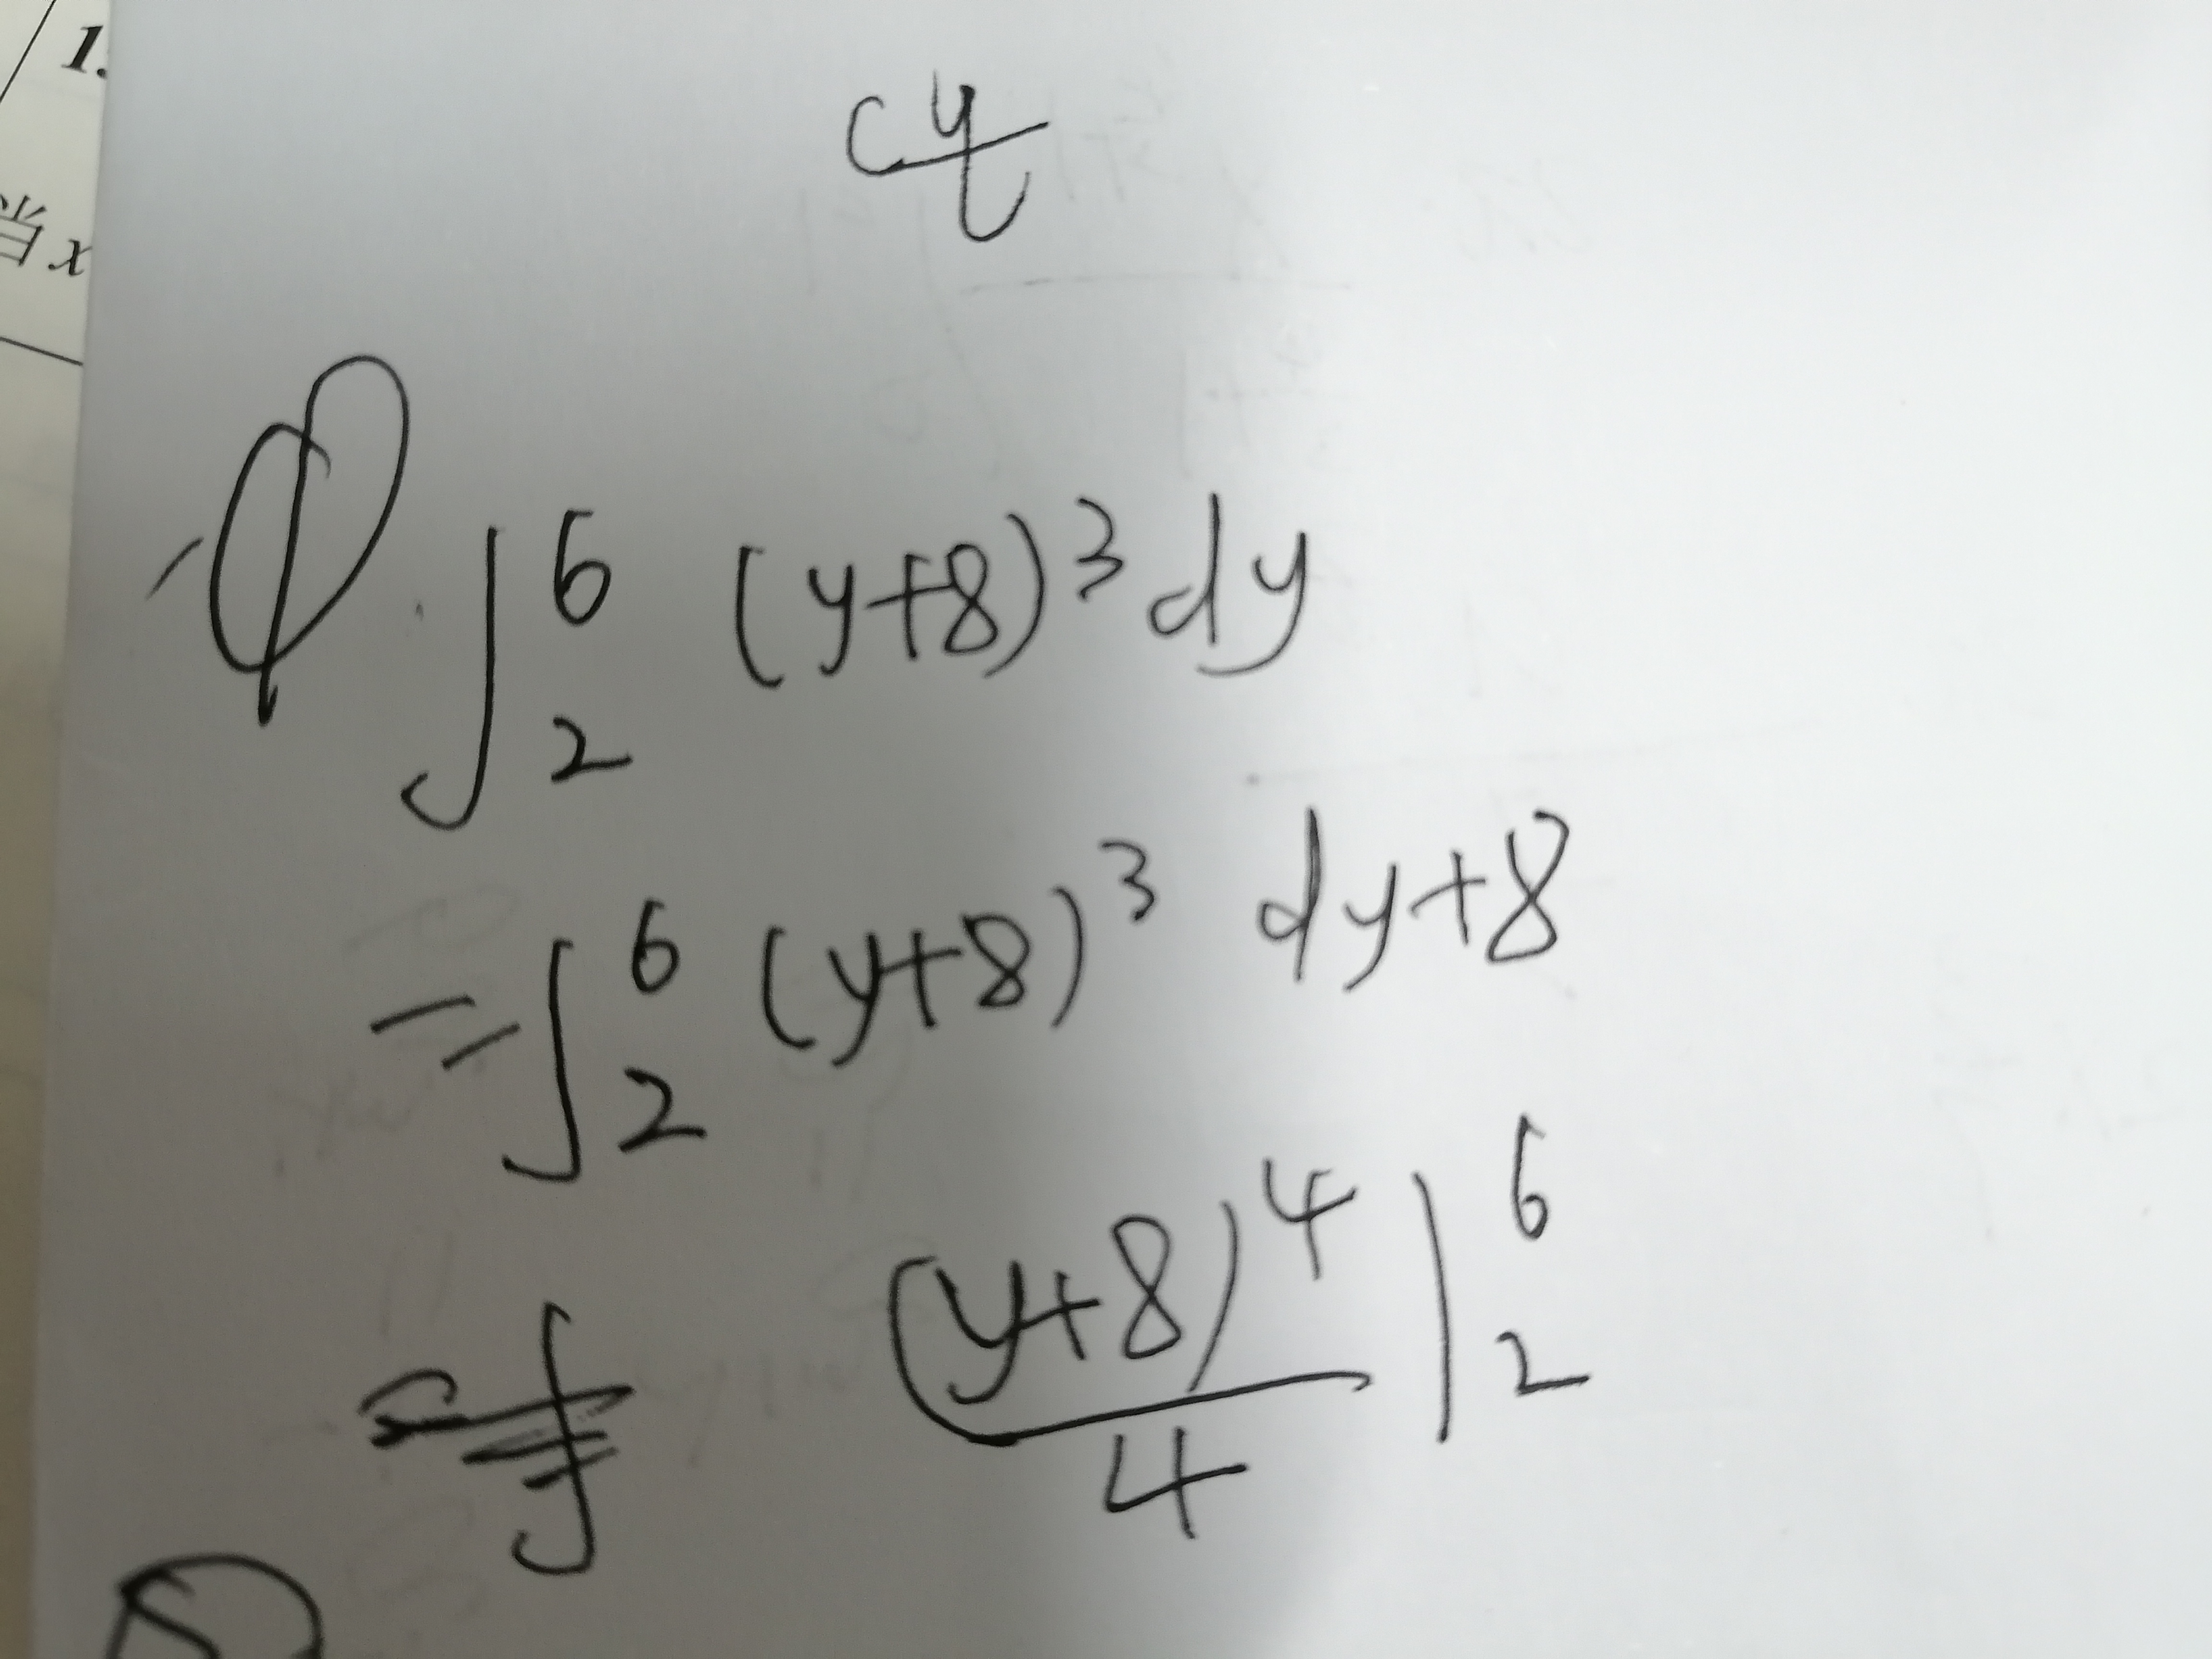 1.
当x
∫₂⁶ (y+8)³dy
=∫₂⁶ (y+8)³ dy+8
(y+8)⁴/4 |₂⁶